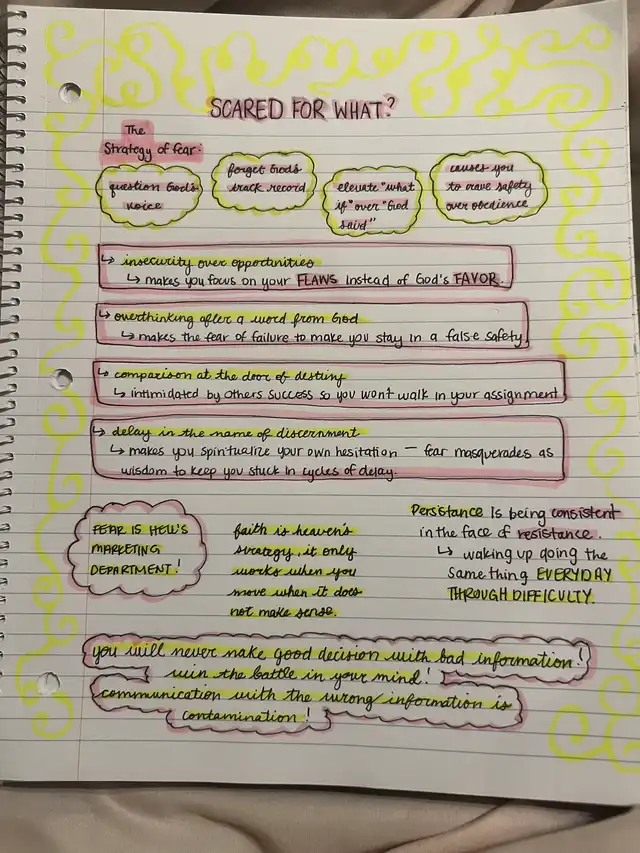 SCARED FOR WHAT?
The
Strategy of fear:
question God's
voice
forget God's
track record
elevate "what
if" over "God
said"
causes you
to crave safety
over obedience
↳ insecurity over opportunities
↳ makes you focus on your FLAWS instead of God's FAVOR.
↳ overthinking after a word from God
↳ makes the fear of failure to make you stay in a false safety
↳ comparison at the door of destiny
↳ intimidated by others success so you won't walk in your assignment
↳ delay in the name of discernment
↳ makes you spiritualize your own hesitation — fear masquerades as
wisdom to keep you stuck in cycles of delay.
FEAR IS HELL'S
MARKETING
DEPARTMENT!
faith is heaven's
strategy, it only
works when you
move when it does
not make sense.
Persistance is being consistent
in the face of resistance.
↳ waking up doing the
same thing EVERYDAY
THROUGH DIFFICULTY.
you will never make good decision with bad information!
win the battle in your mind!
communication with the wrong information is
contamination!